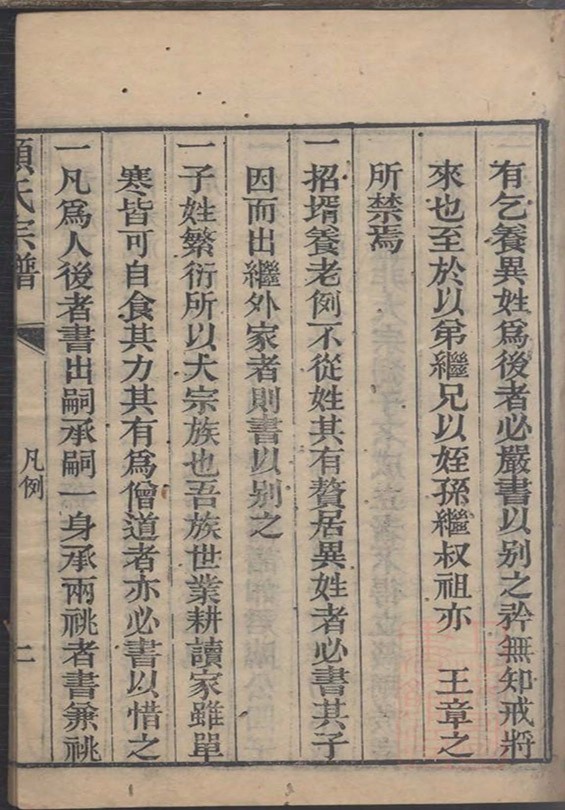 有乞養異姓爲後者必嚴書以别之矜無知戒將
來也至於以弟繼兄以姪孫繼叔祖亦　王章之
所禁焉
一招壻養老例不從姓其有贅居異姓者必書其子
因而出繼外家者則書以别之
一子姓繁衍所以大宗族也吾族世業耕讀家雖單
寒皆可自食其力其有爲僧道者亦必書以惜之
一凡爲人後者書出嗣承嗣一身承兩祧者書兼祧
氏宗譜
凡例
二